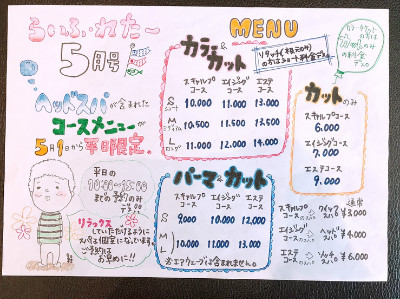 らいふ・れたー
5月号
ヘッドスパが含まれた
コースメニューが
5月1日から平日限定。
平日の
10:00〜15:00
までの予約のみ
デス
リラックス
していただけるように
スパは個室になっています。
ご予約は
お早めに!!
MENU
カラー&カット
リタッチ(根元のみ)
の方はショート料金デス
スキャルプコース
エイジングコース
エステコース
S ショート 10.000 11.000 13.000
M ミディアム 10.500 11.500 13.500
L ロング 11.000 12.000 14.000
パーマ&カット
スキャルプコース
エイジングコース
エステコース
S 9.000 10.000 12.000
M
L 10.000 11.000 13.000
※エアウェーブは含まれません。
のみ
の料金
デス
カットのみ
スキャルプコース
6.000
エイジングコース
7.000
エステコース
9.000
通常
スキャルプコースのスパ → クイックスパ ¥3.000
エイジングコースのスパ → ヘッドスパ ¥4.000
エステコースのスパ → スパ ¥6.000